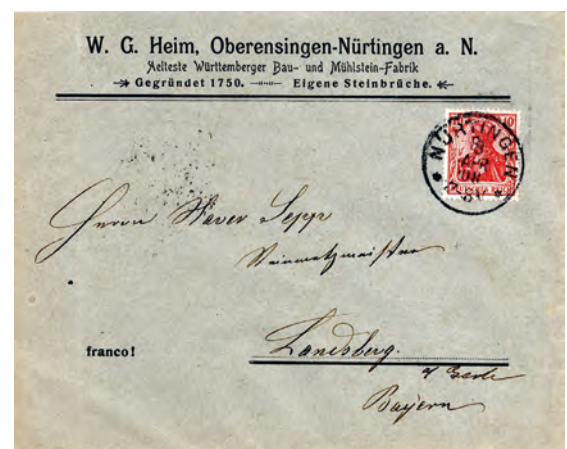 W. G. Heim, Oberensingen-Nürtingen a. N.
Aelteste Württemberger Bau- und Mühlstein-Fabrik
Gegründet 1750. Eigene Steinbrüche.
10
NÜRTINGEN
8
APR
Herrn Xaver Sepp
Steinmetzmeister
franco!
Landsberg
Bayern